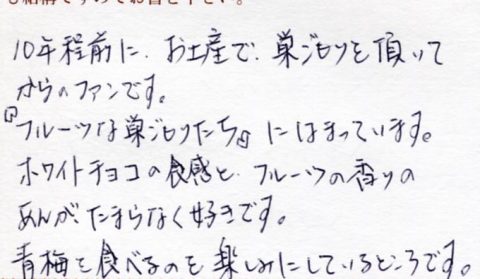 も結構ですのでお書き下さい。
10年程前に、お土産で、巣ごもりを頂いて
からのファンです。
『フルーツな巣ごもりたち』にはまっています。
ホワイトチョコの食感と、フルーツの香りの
あんが、たまらなく好きです。
青梅を食べるのを楽しみにしているところです。